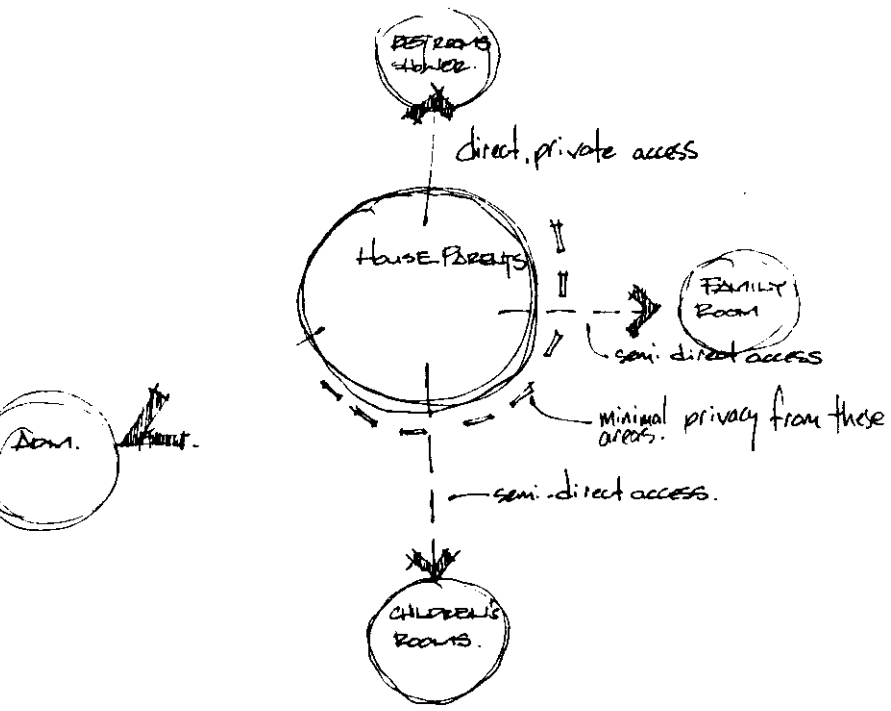 RESTROOMS
SHOWER.
direct, private access
HOUSE PARENTS
FAMILY
ROOM
semi-direct access
minimal privacy from these
areas.
ADM.
semi-direct access.
CHILDREN'S
ROOMS.